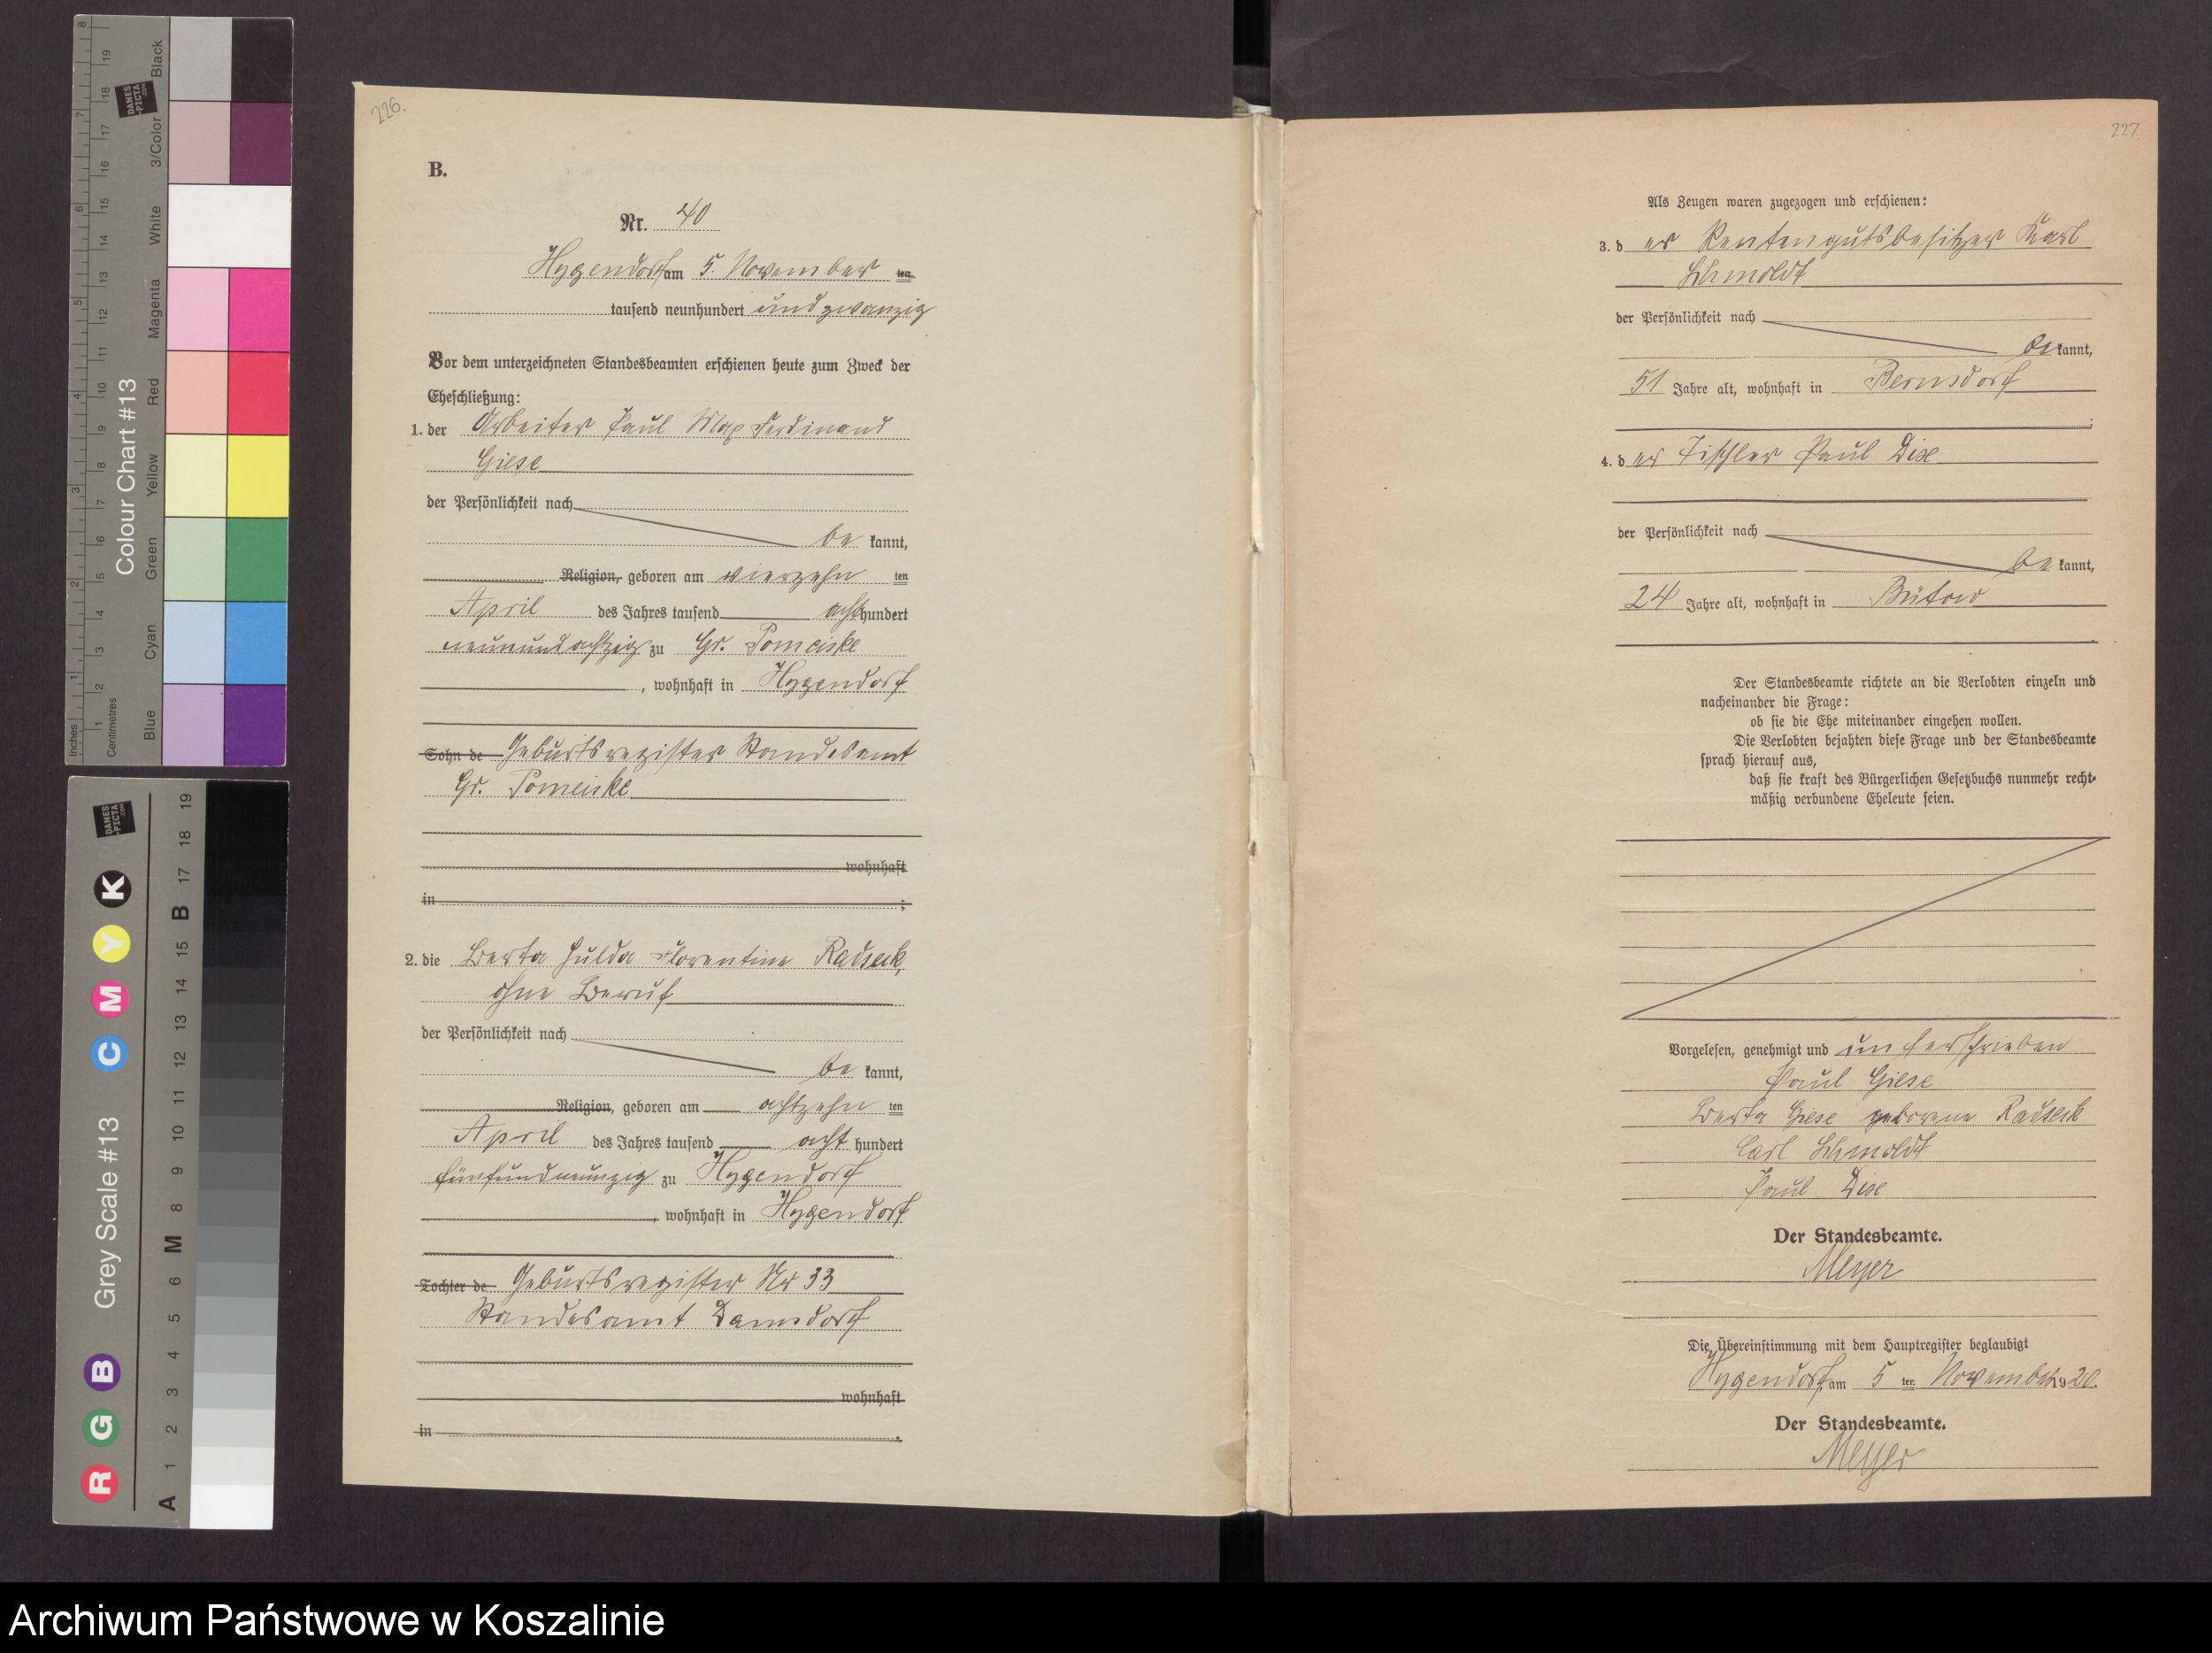 226.
B.
Nr. 40
Hygendorf am 5. November ten
tausend neunhundert und zwanzig
Vor dem unterzeichneten Standesbeamten erschienen heute zum Zweck der
Eheschließung:
1. der Arbeiter Paul Max Ferdinand
Giese
der Persönlichkeit nach
be kannt,
Religion, geboren am vierzehn ten
April des Jahres tausend acht hundert
neunundachtzig zu Gr. Pomeiske
, wohnhaft in Hygendorf
Sohn de Geburtsregister Standesamt
Gr. Pomeiske
wohnhaft
in ;
2. die Berta Hulda Florentine Radseck,
ohne Beruf
der Persönlichkeit nach
be kannt,
Religion, geboren am achtzehn ten
April des Jahres tausend acht hundert
fünfundneunzig zu Hygendorf
, wohnhaft in Hygendorf
Tochter de Geburtsregister Nr 33
Standesamt Damsdorf
wohnhaft
in .
227.
Als Zeugen waren zugezogen und erschienen:
3. d er Rentengutsbesitzer Karl
Schmoldt
der Persönlichkeit nach
be kannt,
51 Jahre alt, wohnhaft in Bernsdorf
;
4. d er Tischler Paul Dix
der Persönlichkeit nach
be kannt,
24 Jahre alt, wohnhaft in Bütow
Der Standesbeamte richtete an die Verlobten einzeln und
nacheinander die Frage:
ob sie die Ehe miteinander eingehen wollen.
Die Verlobten bejahten diese Frage und der Standesbeamte
sprach hierauf aus,
daß sie kraft des Bürgerlichen Gesetzbuchs nunmehr recht-
mäßig verbundene Eheleute seien.
Vorgelesen, genehmigt und unterschrieben
Paul Giese
Berta Giese geborene Radseck
Carl Schmoldt
Paul Dix
Der Standesbeamte.
Meyer
Die Übereinstimmung mit dem Hauptregister beglaubigt
Hygendorf, am 5 ten November 1920.
Der Standesbeamte.
Meyer
Colour Chart #13
Inches
Centimetres
Blue
Cyan
Green
Yellow
Red
Magenta
White
3/Color
Black
DANES
-PICTA
.COM
Grey Scale #13
R G B C M Y K
A 1 2 3 4 5 6 M 8 9 10 11 12 13 14 15 B 17 18 19
Archiwum Państwowe w Koszalinie